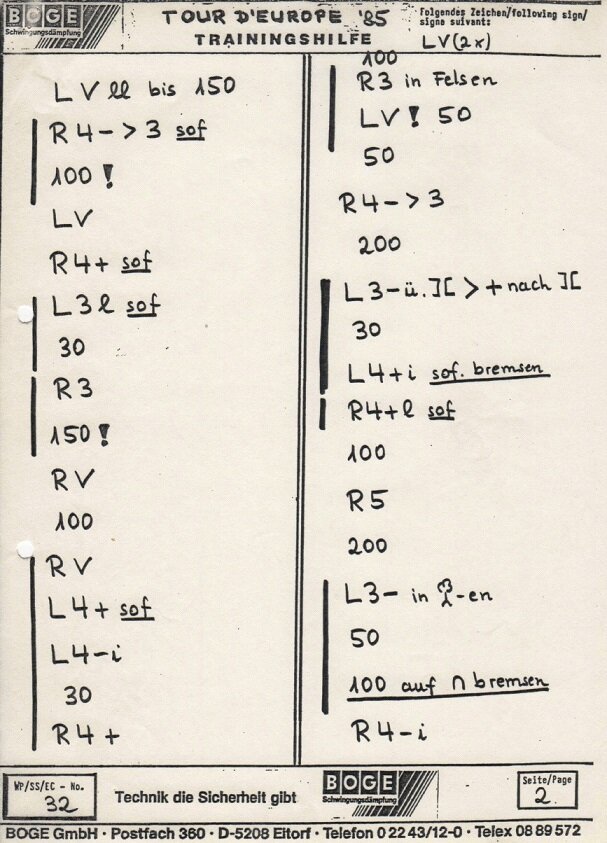 BOGE
Schwingungsdämpfung
TOUR D'EUROPE '85
TRAININGSHILFE
Folgendes Zeichen/following sign/
signe suivant:
LV(2x)
LV ll bis 150
R4-> 3 sof
100 !
LV
R4+ sof
L3l sof
30
R3
150 !
RV
100
RV
L4+ sof
L4-i
30
R4+
100
R3 in Felsen
LV ! 50
50
R4-> 3
200
L3-ü. ][ > + nach ][
30
L4+i sof. bremsen
R4+l sof
100
R5
200
L3- in -en
50
100 auf ∩ bremsen
R4-i
WP/SS/EC - No.
32
Technik die Sicherheit gibt
BOGE
Schwingungsdämpfung
Seite/Page
2
BOGE GmbH · Postfach 360 · D-5208 Eitorf · Telefon 0 22 43/12-0 · Telex 08 89 572